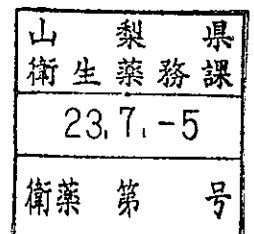 山梨県
衛生薬務課
23.7.-5
衛薬 第 号